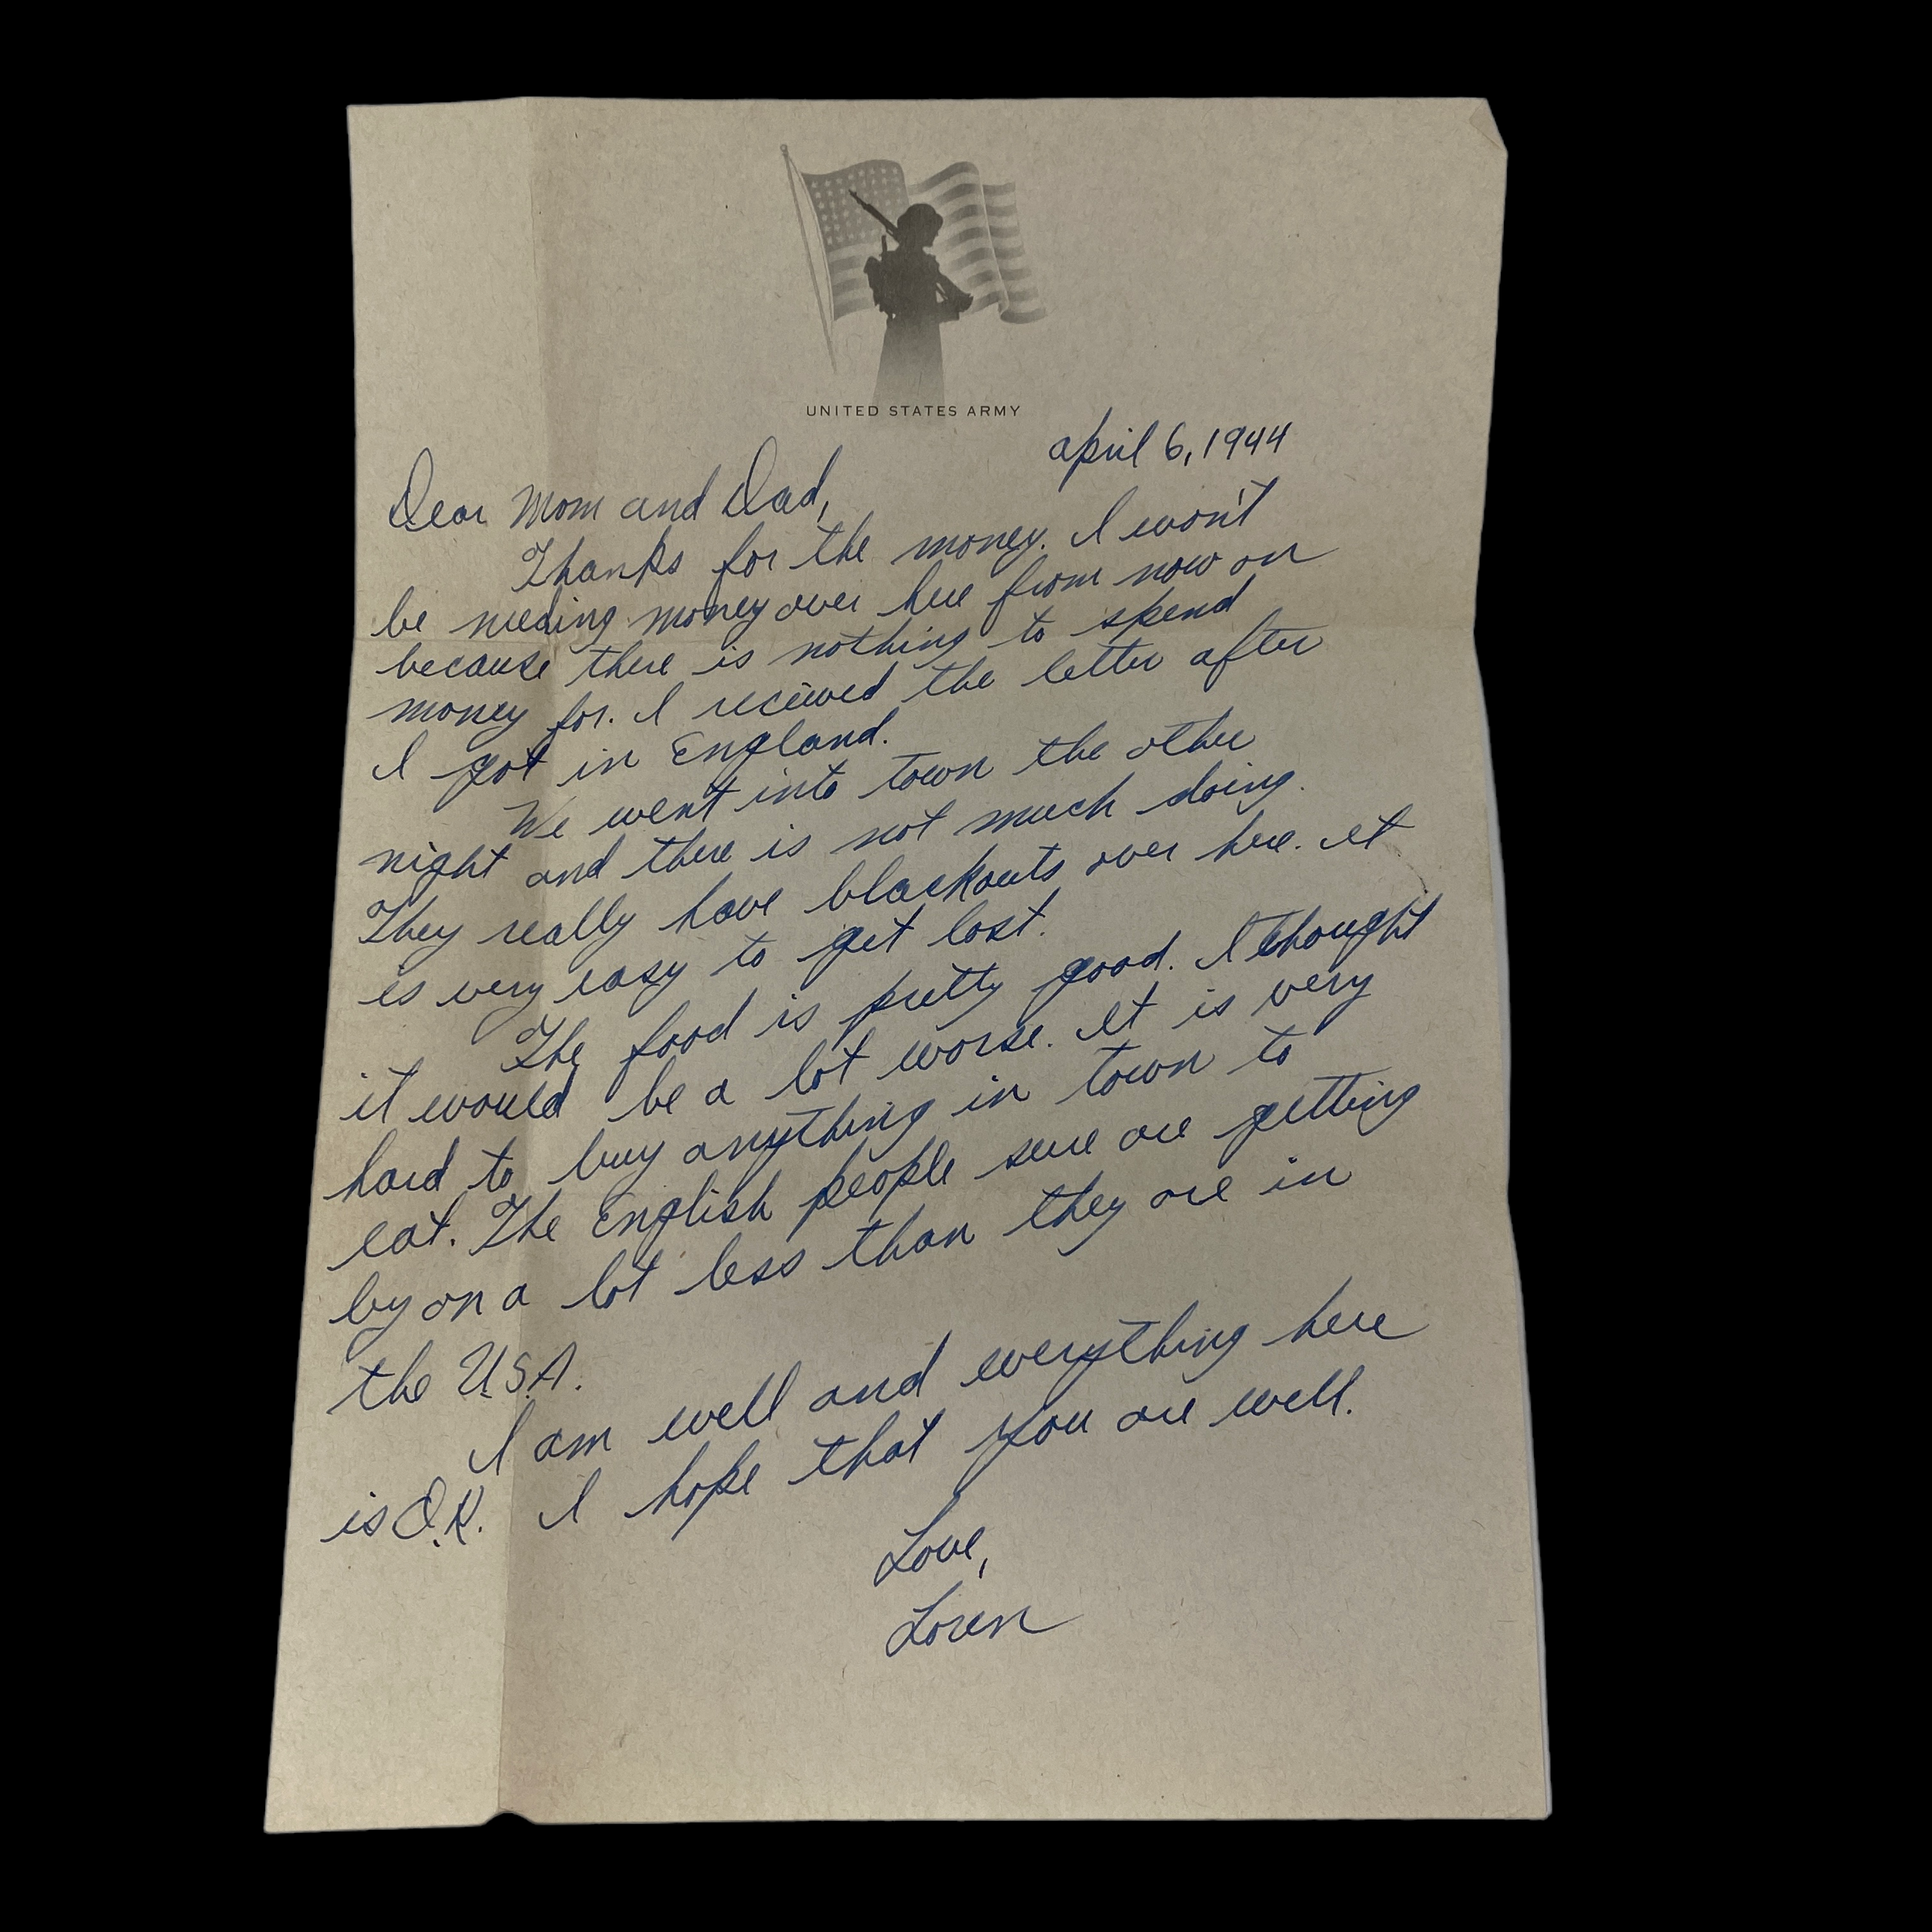 UNITED STATES ARMY
April 6, 1944
Dear Mom and Dad,
Thanks for the money. I won't
be needing money over here from now on
because there is nothing to spend
money for. I recieved the letter after
I got in England.
We went into town the other
night and there is not much doing.
They really have blackouts over here. It
is very easy to get lost.
The food is pretty good. I thought
it would be a lot worse. It is very
hard to buy anything in town to
eat. The English people sure are getting
by on a lot less than they are in
the U.S.A.
I am well and everything here
is O.K. I hope that you are well.
Love,
Loren